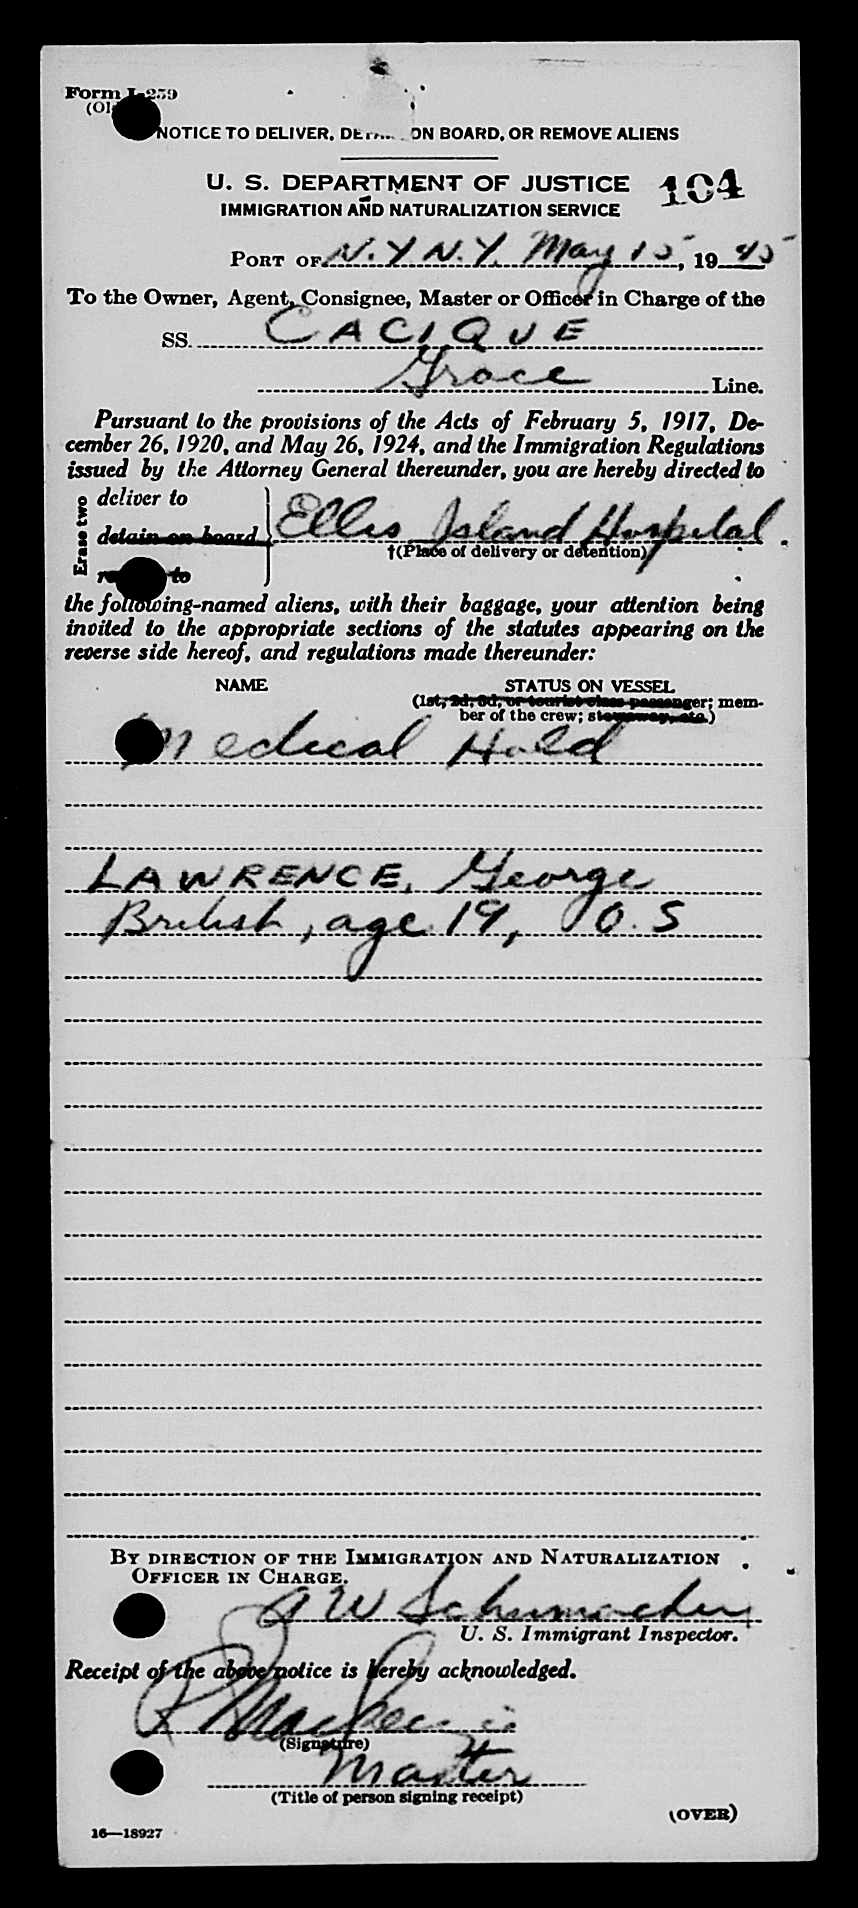 Form I-259
NOTICE TO DELIVER, DETAIN ON BOARD, OR REMOVE ALIENS
U. S. DEPARTMENT OF JUSTICE 104
IMMIGRATION AND NATURALIZATION SERVICE
PORT OF N.Y. N.Y. May 15, 1945
To the Owner, Agent, Consignee, Master or Officer in Charge of the
SS. CACIQUE
Grace Line.
Pursuant to the provisions of the Acts of February 5, 1917, De-
cember 26, 1920, and May 26, 1924, and the Immigration Regulations
issued by the Attorney General thereunder, you are hereby directed to
Erase two
deliver to
detain on board Ellis Island Hospital.
†(Place of delivery or detention)
to
the following-named aliens, with their baggage, your attention being
invited to the appropriate sections of the statutes appearing on the
reverse side hereof, and regulations made thereunder:
NAME STATUS ON VESSEL
(1st, 2d, 3d, or tourist class passenger; mem-
ber of the crew; stowaway, etc.)
Medical Hold
LAWRENCE, George
British, age 19, O.S
BY DIRECTION OF THE IMMIGRATION AND NATURALIZATION
OFFICER IN CHARGE.
A W Schumacher
U. S. Immigrant Inspector.
Receipt of the above notice is hereby acknowledged.
(Signature)
Master
(Title of person signing receipt)
(OVER)
16—18927